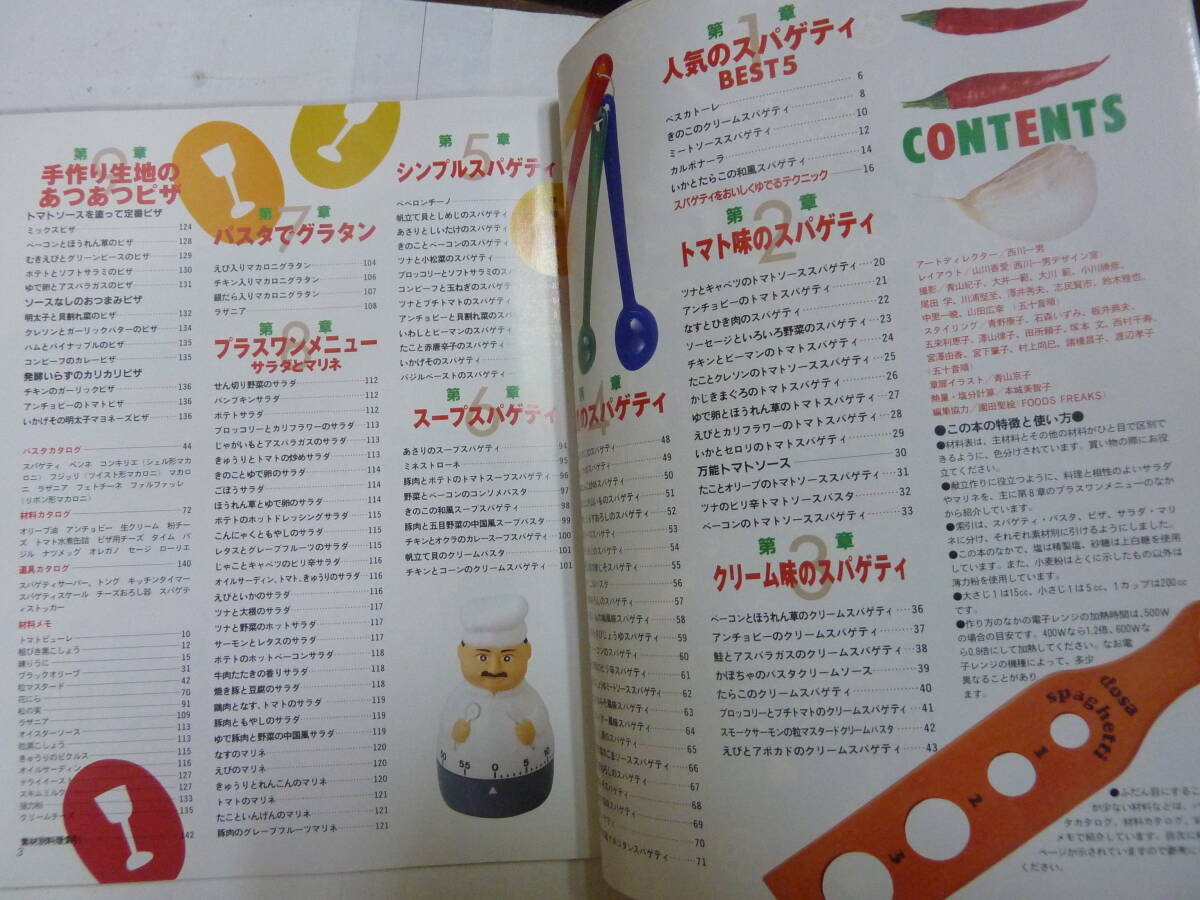 CONTENTS
第1章
人気のスパゲティ
BEST5
ペスカトーレ 6
きのこのクリームスパゲティ 8
ミートソーススパゲティ 10
カルボナーラ 12
いかとたらこの和風スパゲティ 14
スパゲティをおいしくゆでるテクニック 16
第2章
トマト味のスパゲティ
ツナとキャベツのトマトソーススパゲティ 20
アンチョビーのトマトスパゲティ 21
なすとひき肉のスパゲティ 22
ソーセージといろいろ野菜のスパゲティ 23
チキンとピーマンのトマトスパゲティ 24
たことクレソンのトマトスパゲティ 25
かじきまぐろのトマトスパゲティ 26
ゆで卵とほうれん草のトマトスパゲティ 27
えびとカリフラワーのトマトスパゲティ 28
いかとセロリのトマトスパゲティ 29
万能トマトソース 30
たことオリーブのトマトソーススパゲティ 31
ツナのピリ辛トマトソースパスタ 32
ベーコンのトマトソーススパゲティ 33
第3章
クリーム味のスパゲティ
ベーコンとほうれん草のクリームスパゲティ 36
アンチョビーのクリームスパゲティ 37
鮭とアスパラガスのクリームスパゲティ 38
かぼちゃのパスタクリームソース 39
たらこのクリームスパゲティ 40
ブロッコリーとプチトマトのクリームスパゲティ 41
スモークサーモンの粒マスタードクリームパスタ 42
えびとアボカドのクリームスパゲティ 43
アートディレクター/西川一男
レイアウト/山川香愛(西川一男デザイン室)
撮影/青山紀子、大井一範、大川 範、小川勝彦、
尾田 学、川浦堅至、澤井秀夫、志民賢市、鈴木雅也、
中里一暁、山田広幸(五十音順)
スタイリング/青野康子、石森いずみ、板井典夫、
五来利恵子、澤山律子、田所頼子、塚本 文、西村千寿、
宮澤由香、宮下肇子、村上同巳、諸橋昌子、渡辺孝子
(五十音順)
章扉イラスト/青山京子
熱量・塩分計算/本城美智子
編集協力/園田聖絵(FOODS FREAKS)
●この本の特徴と使い方●
●材料表は、主材料とその他の材料がひと目で区別で
きるように、色分けされています。買い物の際にお役
立てください。
●献立作りに役立つように、料理と相性のよいサラダ
やマリネを、主に第8章のプラスワンメニューのなか
から紹介しています。
●索引は、スパゲティ・パスタ、ピザ、サラダ・マリ
ネに分け、それぞれ素材別に引けるようにしました。
●この本のなかで、塩は精製塩、砂糖は上白糖を使用
しています。また、小麦粉はとくに示したもの以外は
薄力粉を使用しています。
●大さじ1は15cc、小さじ1は5cc、1カップは200cc
です。
●作り方のなかの電子レンジの加熱時間は、500W
の場合の目安です。400Wなら1.2倍、600Wな
ら0.8倍にして加熱してください。なお電
子レンジの機種によって、多少
異なることがあり
ます。
dosa
spaghetti
1
2
3
●ふだん目にするこ
が少ない材料などは、
タカタログ、材料カタログ、
メモで紹介しています。目次に
ページが示されていますので参考に
ください。
4
章
のスパゲティ
48
49
50
51
52
53
54
55
56
57
58
59
60
61
62
63
64
65
66
67
68
69
70
71
第5章
シンプルスパゲティ
ペペロンチーノ
帆立て貝としめじのスパゲティ
あさりとしいたけのスパゲティ
きのことベーコンのスパゲティ
ツナと小松菜のスパゲティ
ブロッコリーとソフトサラミのス
コンビーフと玉ねぎのスパゲティ
ツナとプチトマトのスパゲティ
アンチョビーと貝割れ菜のスパ
いわしとピーマンのスパゲティ
たこと赤唐辛子のスパゲティ
いかげそのスパゲティ
バジルペーストのスパゲティ
第6章
スープスパゲティ
あさりのスープスパゲティ 94
ミネストローネ 95
豚肉とポテトのトマトスープスパゲティ 96
野菜とベーコンのコンソメパスタ 97
きのこの和風スープスパゲティ 98
豚肉と五目野菜の中国風スープパスタ 99
チキンとオクラのカレースープスパゲティ 100
帆立て貝のクリームパスタ 101
チキンとコーンのクリームスパゲティ 101
50 55 0 5 10
第7章
パスタでグラタン
えび入りマカロニグラタン 104
チキン入りマカロニグラタン 106
銀たら入りマカロニグラタン 107
ラザニア 108
第8章
プラスワンメニュー
サラダとマリネ
せん切り野菜のサラダ 112
パンプキンサラダ 112
ポテトサラダ 112
ブロッコリーとカリフラワーのサラダ 113
じゃがいもとアスパラガスのサラダ 113
きゅうりとトマトの炒めサラダ 113
きのことゆで卵のサラダ 114
ごぼうサラダ 114
ほうれん草とゆで卵のサラダ 114
ポテトのホットドレッシングサラダ 115
こんにゃくともやしのサラダ 115
レタスとグレープフルーツのサラダ 115
じゃことキャベツのピリ辛サラダ 116
オイルサーディン、トマト、きゅうりのサラダ 116
えびといかのサラダ 116
ツナと大根のサラダ 117
ツナと野菜のホットサラダ 117
サーモンとレタスのサラダ 117
ポテトのホットベーコンサラダ 118
牛肉たたきの香りサラダ 118
焼き豚と豆腐のサラダ 118
鶏肉となす、トマトのサラダ 119
豚肉ともやしのサラダ 119
ゆで豚肉と野菜の中国風サラダ 119
なすのマリネ 120
えびのマリネ 120
きゅうりとれんこんのマリネ 120
トマトのマリネ 121
たこといんげんのマリネ 121
豚肉のグレープフルーツマリネ 121
第9章
手作り生地の
あつあつピザ
トマトソースを塗って定番ピザ
ミックスピザ 124
ベーコンとほうれん草のピザ 128
むきえびとグリーンピースのピザ 129
ポテトとソフトサラミのピザ 130
ゆで卵とアスパラガスのピザ 131
ソースなしのおつまみピザ
明太子と貝割れ菜のピザ 132
クレソンとガーリックバターのピザ 134
ハムとパイナップルのピザ 135
コンビーフのカレーピザ 135
発酵いらずのカリカリピザ
チキンのガーリックピザ 136
アンチョビーのトマトピザ 136
いかげその明太子マヨネーズピザ 136
パスタカタログ 44
スパゲティ ペンネ コンキリエ(シェル形マカ
ロニ) フジッリ(ツイスト形マカロニ) マカロ
ニ ラザニア フェトチーネ ファルファッレ
(リボン形マカロニ)
材料カタログ 72
オリーブ油 アンチョビー 生クリーム 粉チー
ズ トマト水煮缶詰 ピザ用チーズ タイム バ
ジル ナツメッグ オレガノ セージ ローリエ
道具カタログ 140
スパゲティサーバー、トング キッチンタイマー
スパゲティスケール チーズおろし器 スパゲテ
ィストッカー
材料メモ
トマトピューレ 10
粗びき黒こしょう 12
練りうに 15
ブラックオリーブ 31
粒マスタード 42
花にら 70
松の実 91
ラザニア 109
オイスターソース 113
粒黒こしょう 113
きゅうりのピクルス 115
オイルサーディン 116
ドライイースト 127
スキムミルク 127
強力粉 133
クリームチーズ 135
素材別料理索引 142
3